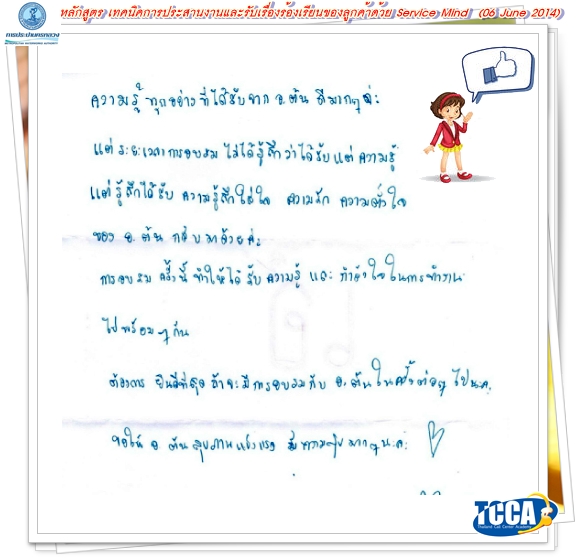 หลักสูตร เทคนิคการประสานงานและรับเรื่องร้องเรียนของลูกค้าด้วย Service Mind (06 June 2014)
การประปานครหลวง
ความรู้ ทุกอย่างที่ได้รับจาก อ.ต้น ดีมากๆค่ะ
แต่ระยะเวลาการอบรม ไม่ได้รู้สึกว่าได้รับแต่ ความรู้
แต่รู้สึกได้รับ ความรู้สึกใส่ใจ ความรัก ความตั้งใจ
ของ อ.ต้น กลับมาด้วยค่ะ
การอบรม ครั้งนี้ ทำให้ได้รับความรู้ และ กำลังใจในการทำงาน
ไปพร้อมๆกัน
ต้องการ ยินดีที่สุด ถ้าจะมีการอบรมกับ อ.ต้นในครั้งต่อๆ ไปนะค
ขอให้ อ ต้น สุขภาพแข็งแรง มีความสุข มากๆนะคะ
TCCA
Thailand Call Center Academy